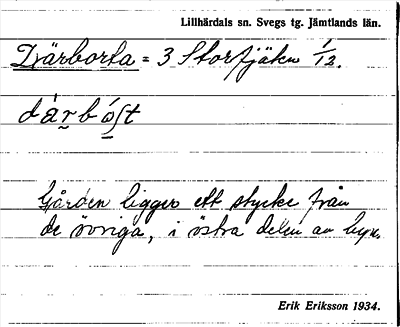 Lillhärdals sn. Svegs tg. Jämtlands län.
Därborta = 3 Storfjäten 1/12.
Gården ligger ett stycke från
de övriga, i östra delen av byn.
Erik Eriksson 1934.